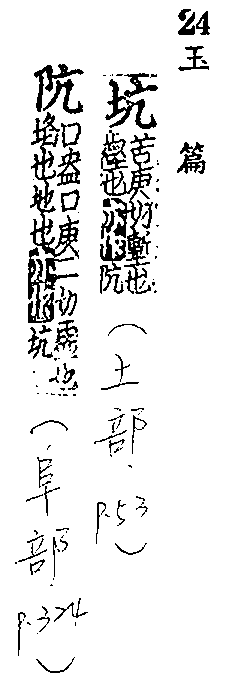 24
玉篇
坑 苦庚切塹也
壑也亦作阬
(土部.
p.53)
阬 口盎口庚二切虛也
埳也池也亦作坑
(阜部.
p.324)